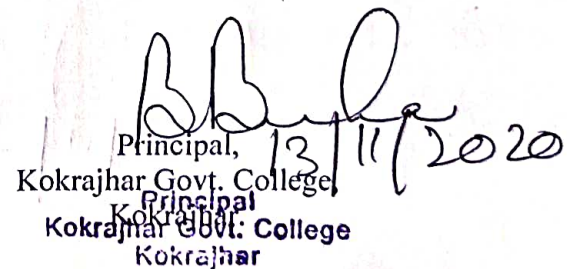 13/11/2020
Principal,
Kokrajhar Govt. College
Kokrajhar
Principal
Kokrajhar Govt. College
Kokrajhar